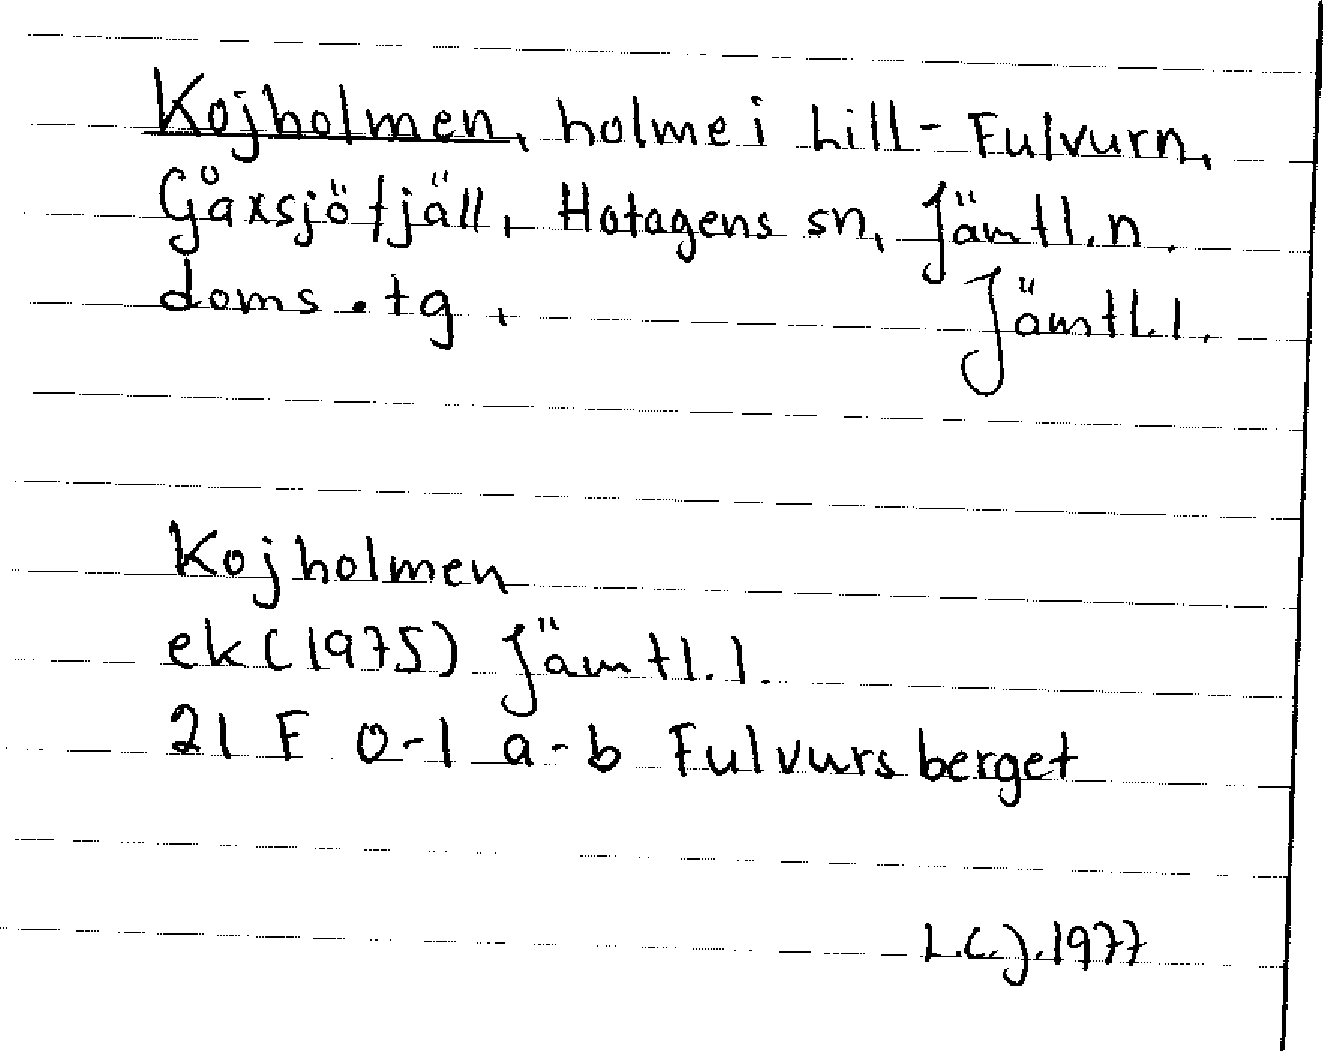 Kojholmen, holme i Lill-Fulvurn,
Gåxsjöfjäll, Hotagens sn, Jämtl.n.
doms.tg, Jämtl.l.
Kojholmen
ek (1975) Jämtl.l.
21 F 0-1 a-b Fulvursberget
L.C.J. 1977